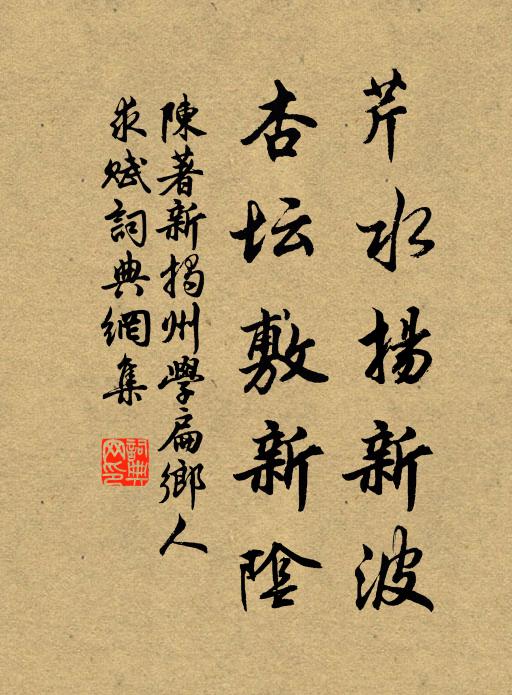 芹水揚新波
杏坛敷新陰
陳著新揭州學扁鄉人
求赋詞典網集
詞典網印